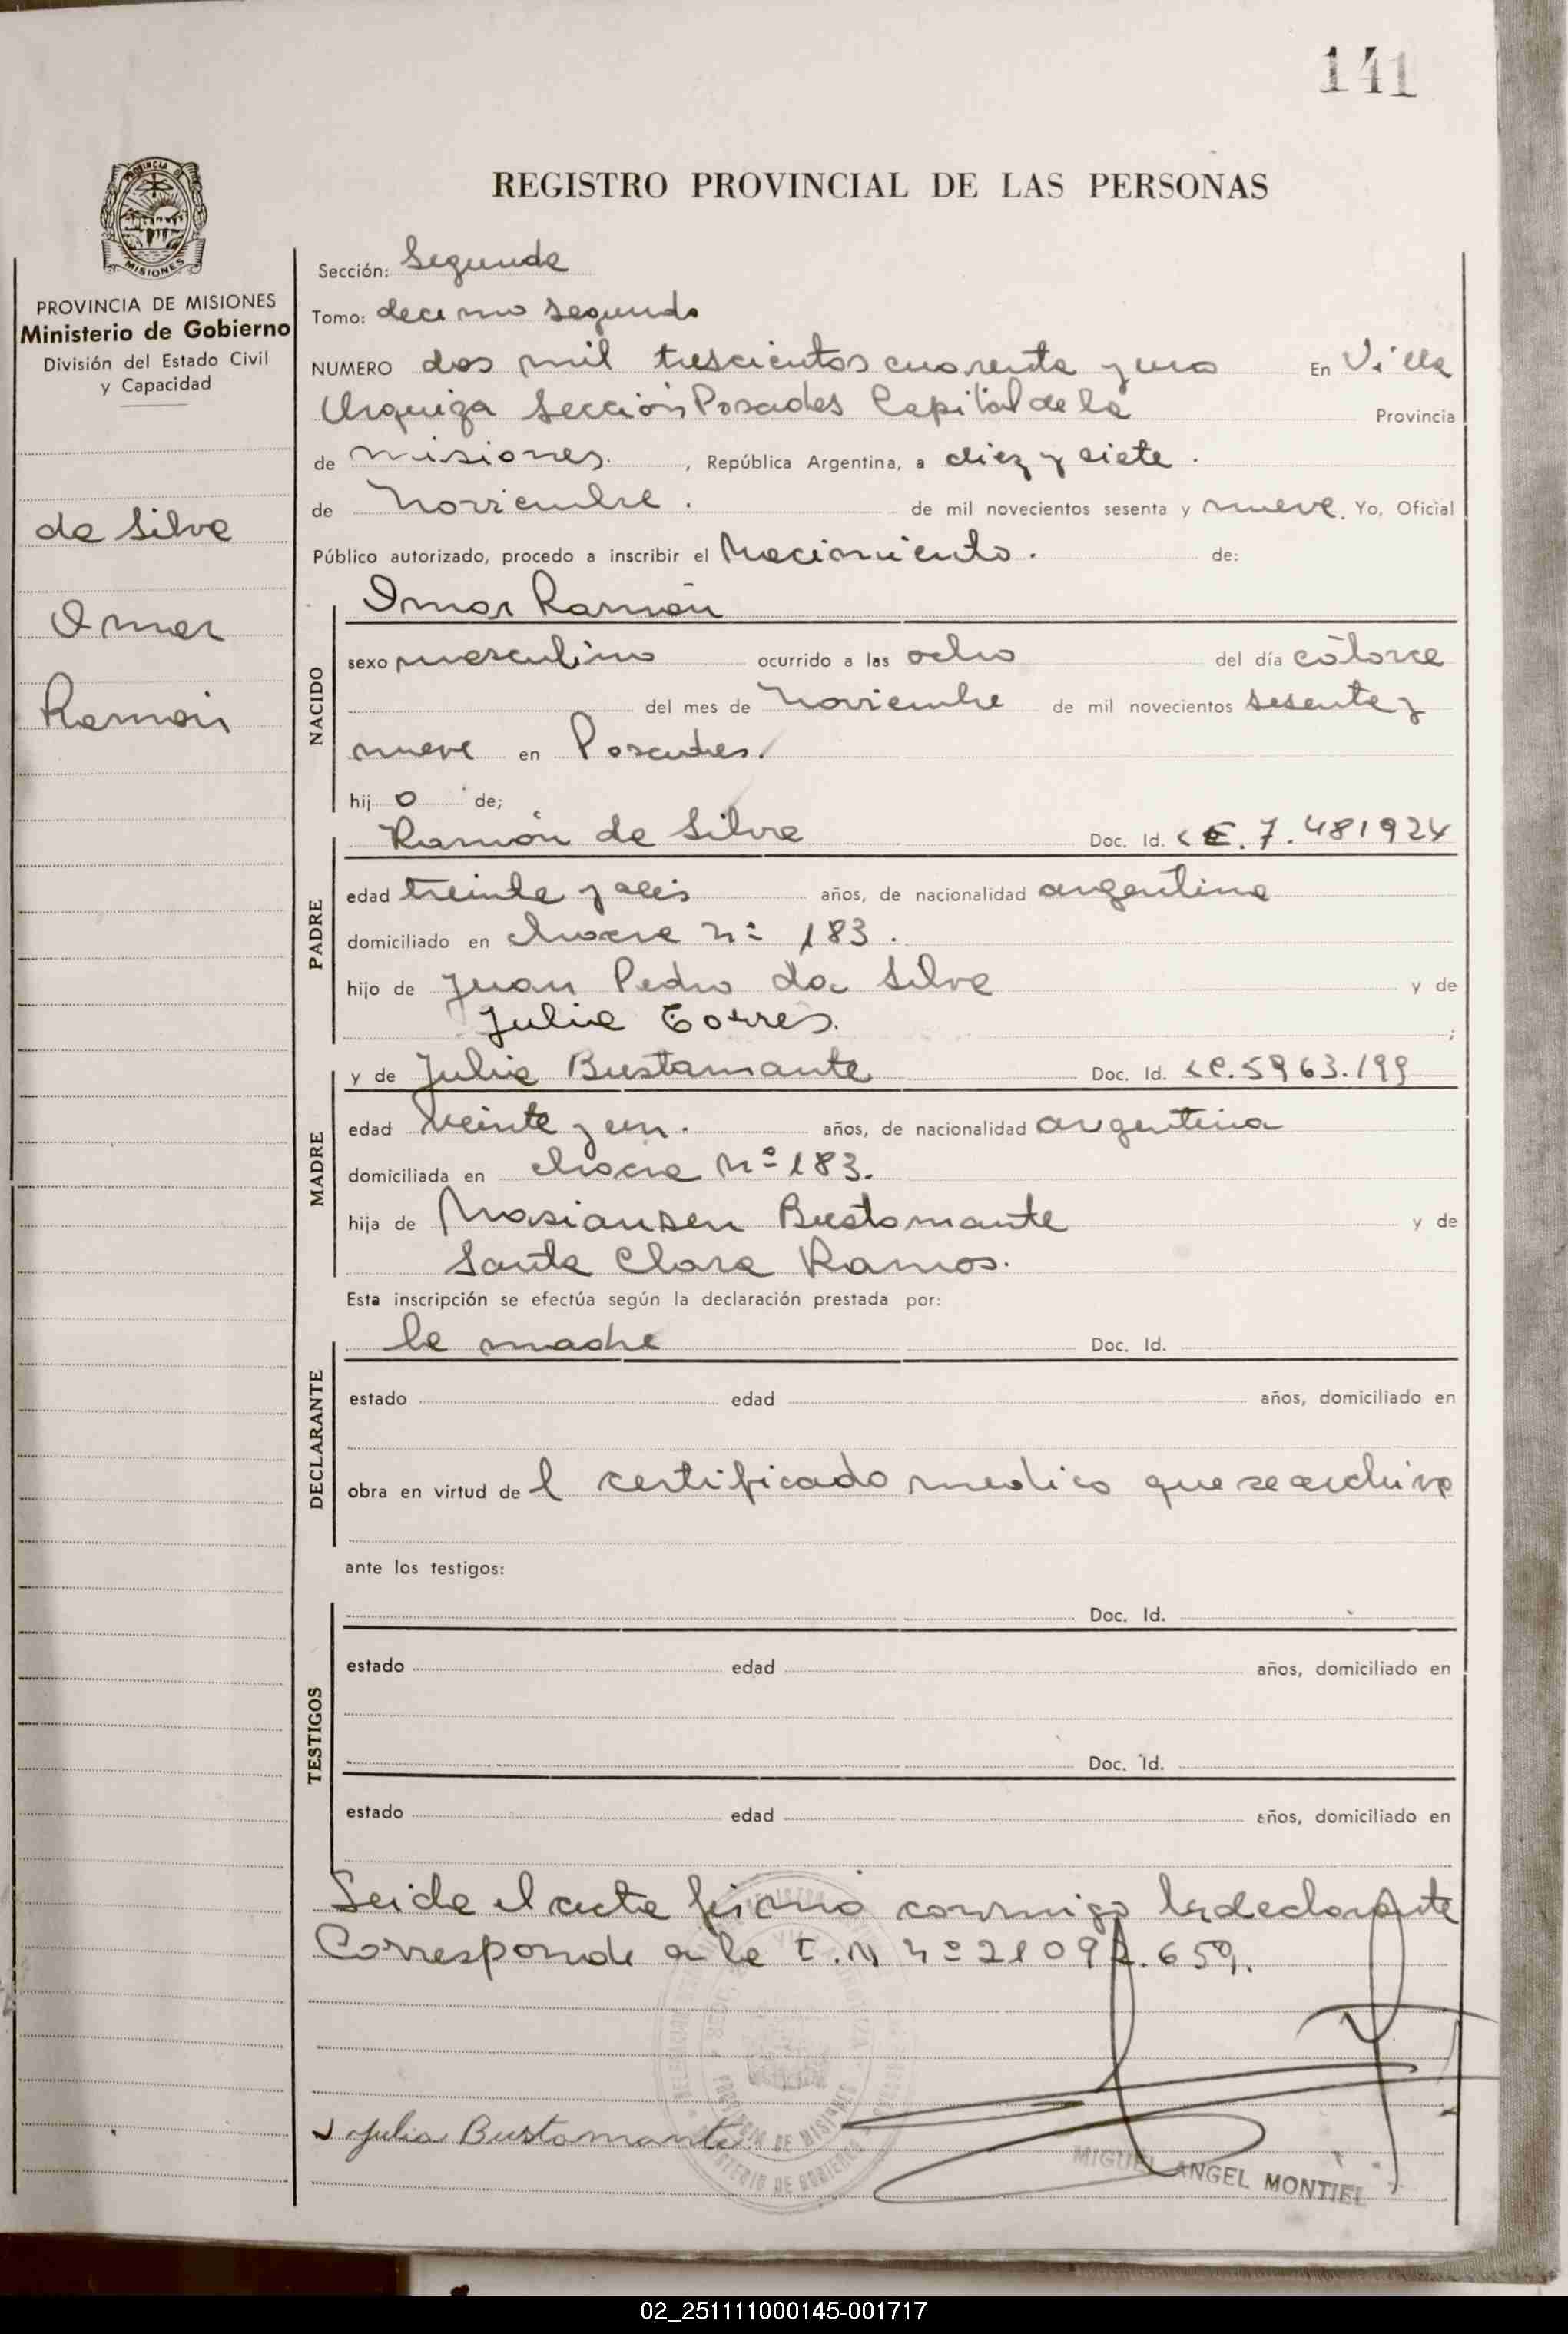 141
REGISTRO PROVINCIAL DE LAS PERSONAS
PROVINCIA DE MISIONES
Ministerio de Gobierno
División del Estado Civil
y Capacidad
de Silva
Omar
Ramón
Sección: Segunda
Tomo: decimo segundo
NUMERO dos mil trescientos cuarenta y uno En Villa
Urquiza Sección Posadas Capital de la Provincia
de misiones. , República Argentina, a diez y siete.
de noviembre. de mil novecientos sesenta y nueve. Yo, Oficial
Público autorizado, procedo a inscribir el Nacimiento. de:
Omar Ramón
NACIDO
sexo masculino ocurrido a las ocho del día catorce
del mes de noviembre de mil novecientos sesenta y
nueve en Posadas.
hij o de;
PADRE
Ramón de Silva Doc. Id. LE. 7.481924
edad treinta y seis años, de nacionalidad argentina
domiciliado en chacra nº 183.
hijo de Juan Pedro da Silva y de
Julia Torres. ;
MADRE
y de Julia Bustamante Doc. Id. LC. 5963.199
edad veinte y un. años, de nacionalidad argentina
domiciliada en chacra nº 183.
hija de Bustamante y de
Santa Clara Ramos.
Esta inscripción se efectúa según la declaración prestada por:
DECLARANTE
la madre Doc. Id.
estado edad años, domiciliado en
obra en virtud de l certificado medico que se archiva
ante los testigos:
TESTIGOS
Doc. Id.
estado edad años, domiciliado en
Doc. Id.
estado edad años, domiciliado en
Leida el acta firma conmigo la declarante
Corresponde a la nº 21 09 .659.
Julia Bustamante
MIGUEL ANGEL MONTIEL
02_251111000145-001717